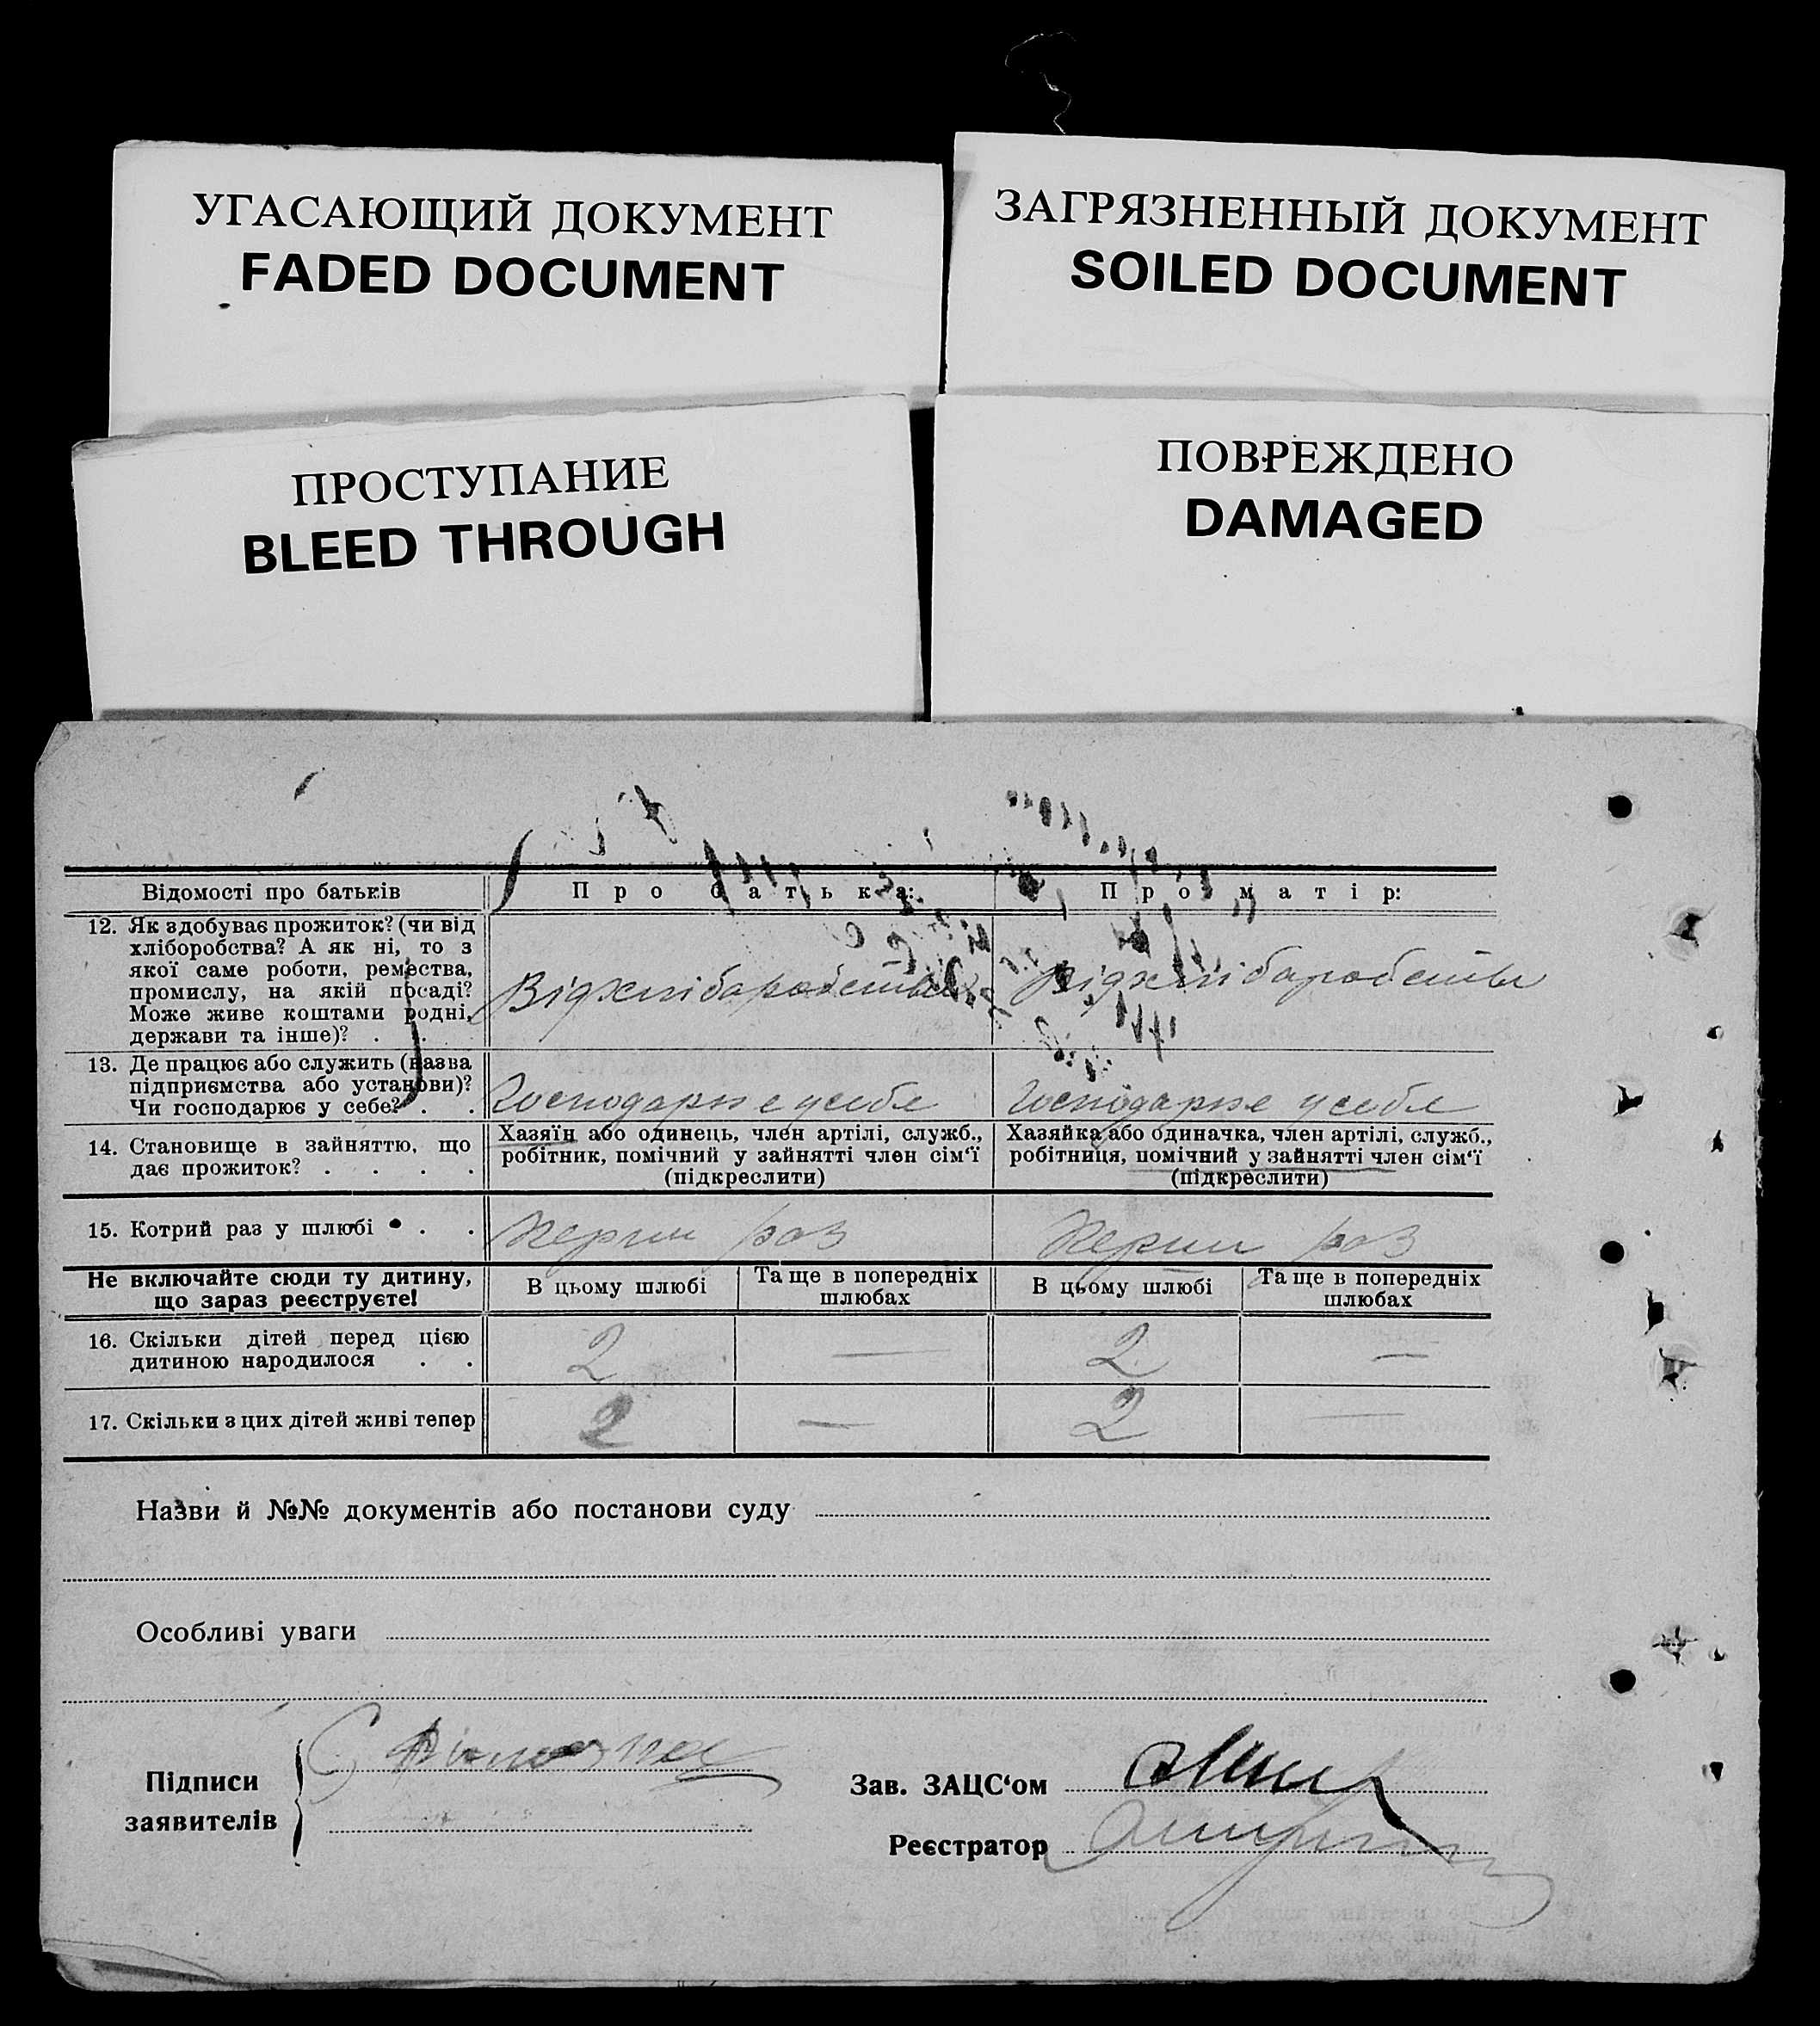 УГАСАЮЩИЙ ДОКУМЕНТ
FADED DOCUMENT
ЗАГРЯЗНЕННЫЙ ДОКУМЕНТ
SOILED DOCUMENT
ПРОСТУПАНИЕ
BLEED THROUGH
ПОВРЕЖДЕНО
DAMAGED
Відомості про батьків
Про батька:
Про матір:
12. Як здобуває прожиток? (чи від
хліборобства? А як ні, то з
якої саме роботи, ремества,
промислу, на якій посаді?
Може живе коштами родні,
держави та інше)? . .
Від хліборобства
Від хліборобства
13. Де працює або служить (назва
підприємства або установи)?
Чи господарює у себе? . .
Господарює у себе
Господарює у себе
14. Становище в зайняттю, що
дає прожиток? . . . .
Хазяїн або одинець, член артілі, служб.,
робітник, помічний у зайнятті член сім'ї
(підкреслити)
Хазяйка або одиначка, член артілі, служб.,
робітниця, помічний у зайнятті член сім'ї
(підкреслити)
15. Котрий раз у шлюбі . . .
Перши раз
Перши раз
Не включайте сюди ту дитину,
що зараз реєструєте!
В цьому шлюбі
Та ще в попередніх
шлюбах
В цьому шлюбі
Та ще в попередніх
шлюбах
16. Скільки дітей перед цією
дитиною народилося . .
2 — 2 —
17. Скільки з цих дітей живі тепер
2 — 2 —
Назви й №№ документів або постанови суду
Особливі уваги
Підписи
заявителів
Зав. ЗАЦС'ом
Реєстратор